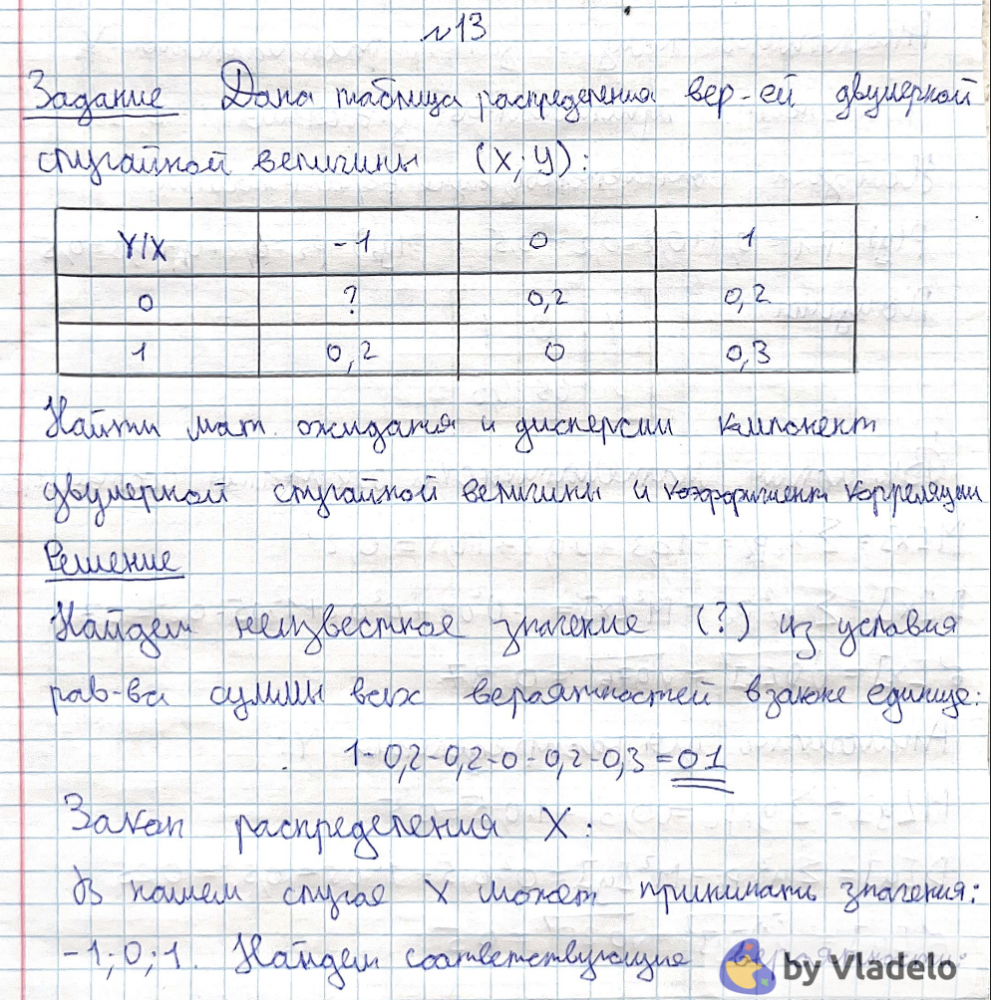 №13
Задание Дана таблица распределения вер-ей двумерной
случайной величины (X; Y):
Y/X -1 0 1
0 ? 0,2 0,2
1 0,2 0 0,3
Найти мат. ожидания и дисперсии компонент
двумерной случайной величины и коэффициент корреляции
Решение
Найдем неизвестное значение (?) из условия
рав-ва суммы всех вероятностей в законе единице:
1-0,2-0,2-0-0,2-0,3=0 1
Закон распределения X:
В нашем случае X может принимать значения:
-1; 0; 1. Найдем соответствующие вероятности:
by Vladelo